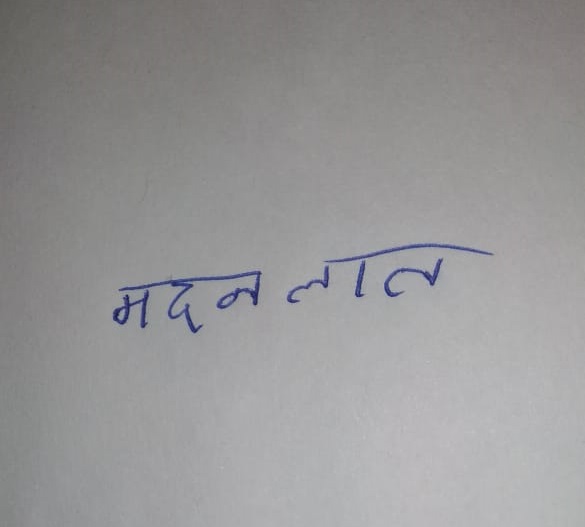 मदन लाल